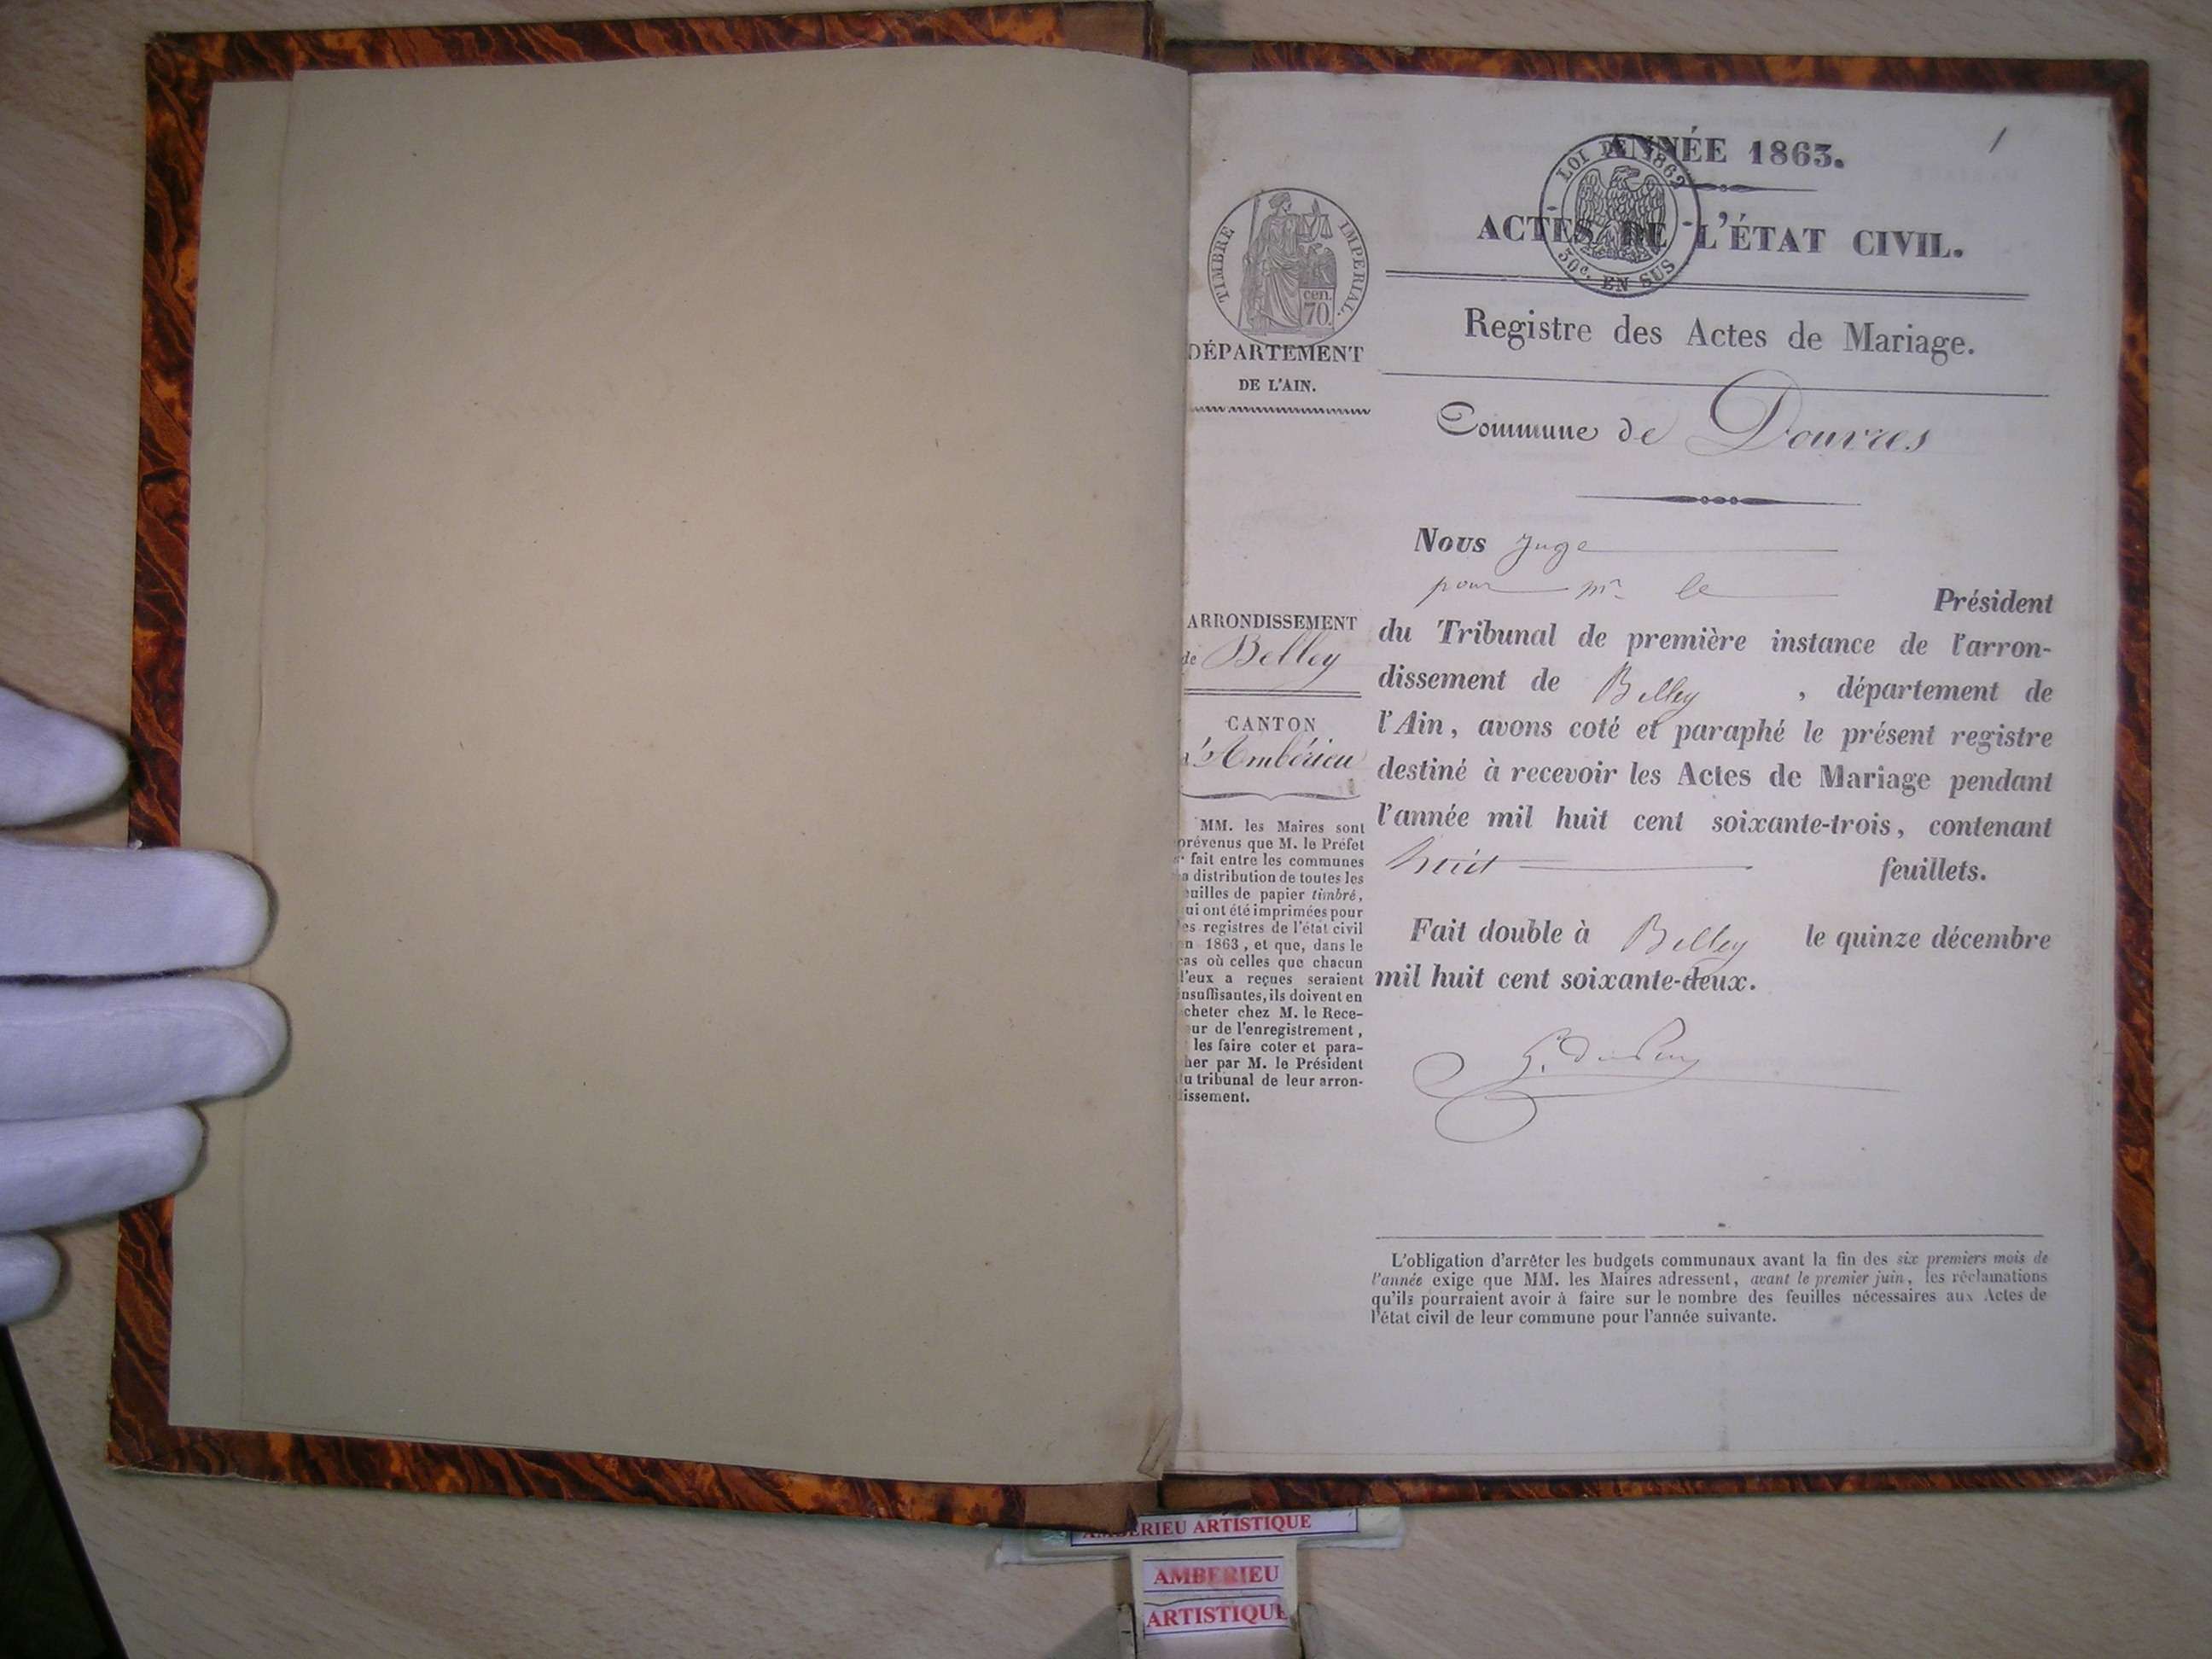 1
ANNÉE 1863.
LOI DE 1862
50c. EN SUS
ACTES DE L'ÉTAT CIVIL.
TIMBRE IMPERIAL.
cen.
70.
Registre des Actes de Mariage.
DÉPARTEMENT
DE L'AIN.
Commune de Douvres
ARRONDISSEMENT
de Belley
CANTON
d'Ambérieu
MM. les Maires sont
prévenus que M. le Préfet
fait entre les communes
la distribution de toutes les
feuilles de papier timbré,
qui ont été imprimées pour
les registres de l'état civil
en 1863, et que, dans le
cas où celles que chacun
d'eux a reçues seraient
insuffisantes, ils doivent en
acheter chez M. le Rece-
eur de l'enregistrement,
les faire coter et para-
pher par M. le Président
du tribunal de leur arron-
dissement.
Nous Juge
pour mr le Président
du Tribunal de première instance de l'arron-
dissement de Belley, département de
l'Ain, avons coté et paraphé le présent registre
destiné à recevoir les Actes de Mariage pendant
l'année mil huit cent soixante-trois, contenant
huit feuillets.
Fait double à Belley le quinze décembre
mil huit cent soixante-deux.
L'obligation d'arrêter les budgets communaux avant la fin des six premiers mois de
l'année exige que MM. les Maires adressent, avant le premier juin, les réclamations
qu'ils pourraient avoir à faire sur le nombre des feuilles nécessaires aux Actes de
l'état civil de leur commune pour l'année suivante.
AMBERIEU ARTISTIQUE
AMBERIEU
ARTISTIQUE